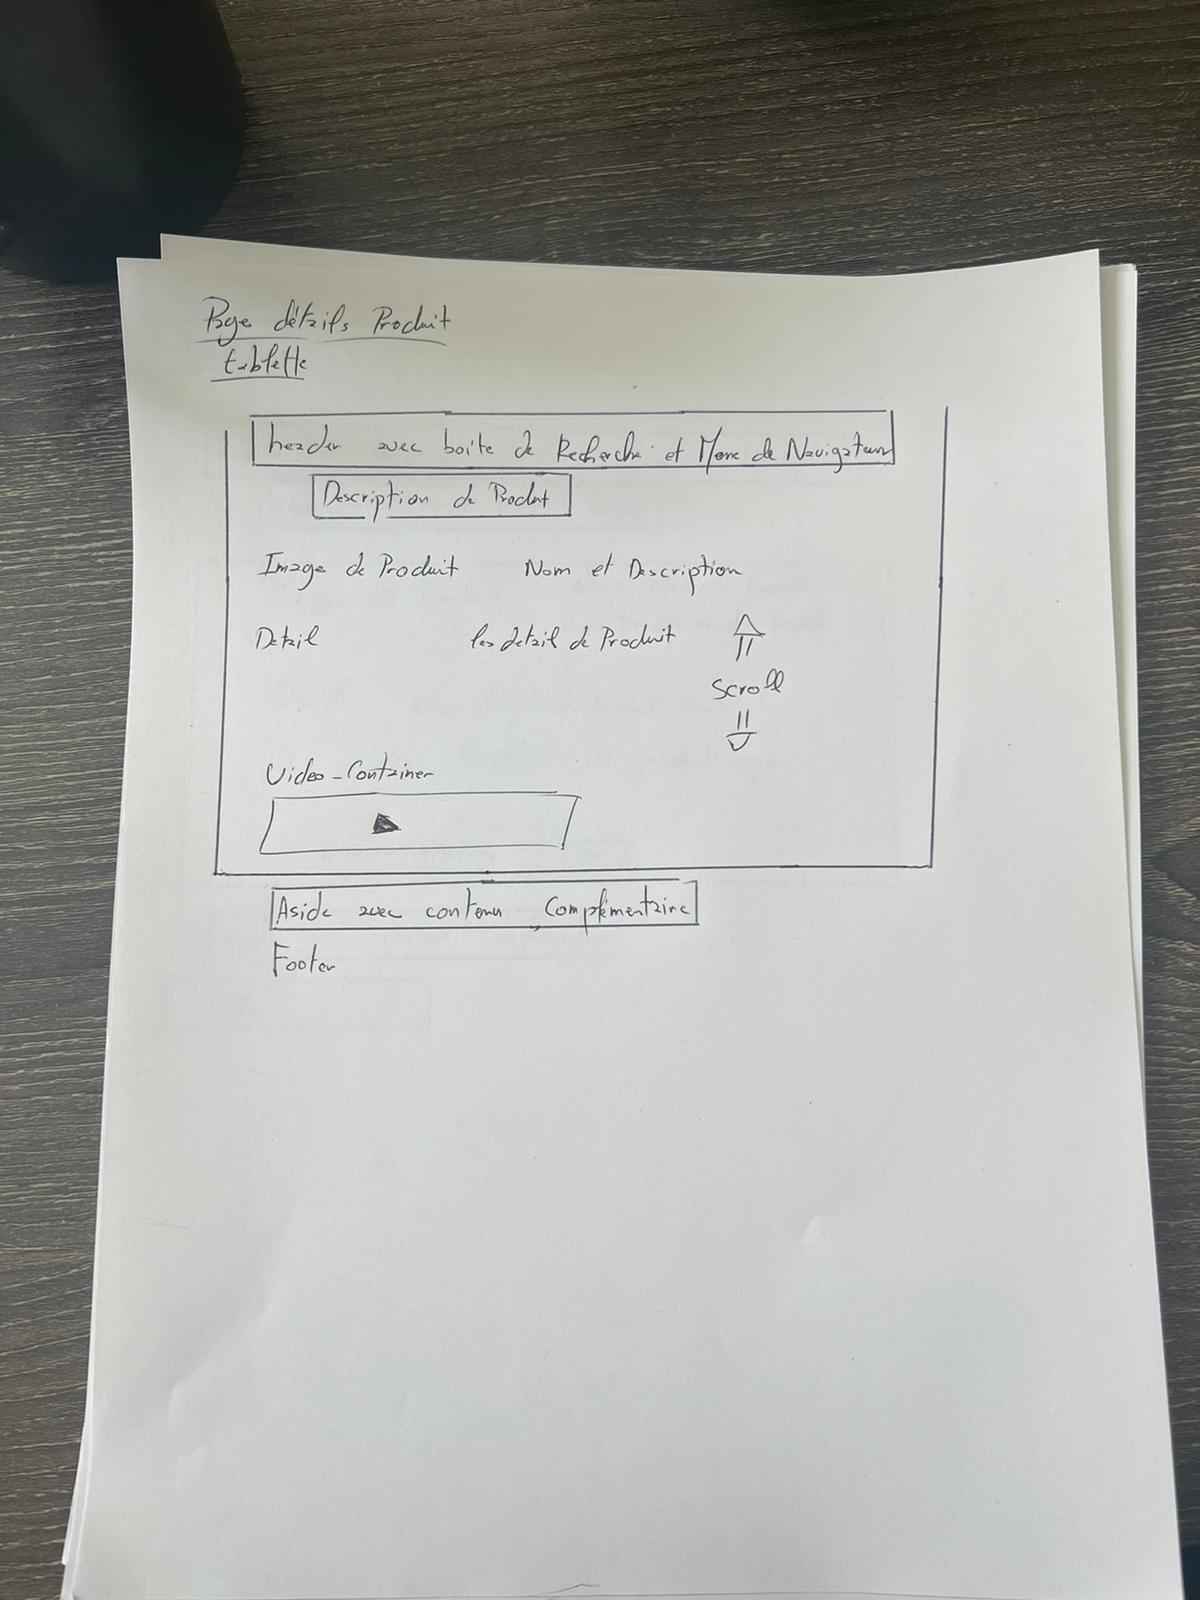 Page détails Produit
tablette
header avec boite de Recherche et Menu de Navigateur
Description de Produt
Image de Produit Nom et Description
Detail les detail de Produit
Scroll
Video-Container
Aside avec contenu Complémentaire
Footer